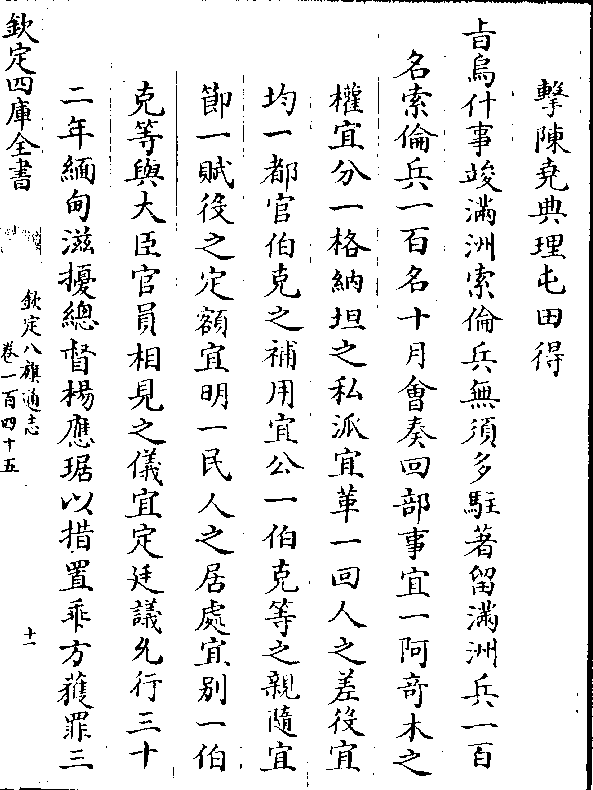 擊陳堯典理屯田得
旨烏什事竣滿洲索倫兵無須多駐著留滿洲兵一百
名索倫兵一百名十月會奏回部事宜一阿奇木之
權宜分一格納坦之私派宜革一回人之差役宜
均一都官伯克之補用宜公一伯克等之親隨宜
節一賦役之定額宜明一民人之居處宜別一伯
克等與大臣官員相見之儀宜定廷議允行三十
二年緬甸滋擾總督楊應琚以措置乖方獲罪三
欽定四庫全書
欽定八旗通志
卷一百四十五
十一